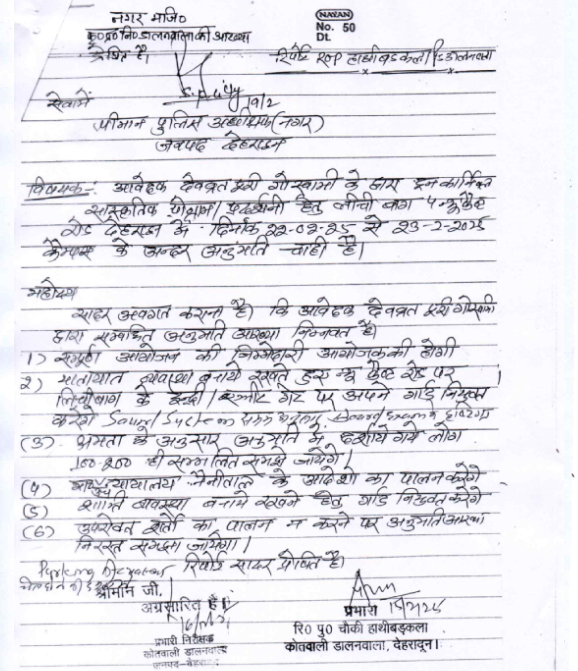 नगर मजि०
NAYAN
No. 50
DL
क०प्र०नि० डालनवाला की आख्या
प्रेषित है।
रिपोर्ट ROP हाथीबडकला/डालनवाला
19/2
सेवामें
श्रीमान पुलिस अधीक्षक (नगर)
जनपद देहरादून
विषयक:- आवेदक देवव्रत पुरी गोस्वामी के द्वारा
सांस्कृतिक प्रोग्राम/प्रदर्शनी हेतु लीची बाग न्यू कैन्ट
रोड देहरादून में दिनांक 22-02-25 से 23-2-2025
कैम्पस के अन्दर अनुमति चाही है।
महोदय
सादर अवगत कराना है। कि आवेदक देवव्रत पुरी गोस्वामी
द्वारा सम्बंधित अनुमति आख्या निम्नवत है।
1) सम्पूर्ण आयोजन की जिम्मेदारी आयोजक की होगी
2) यातायात व्यवस्था बनाये रखते हुए न्यू कैन्ट रोड पर
लिचीबाग के इन्ट्री/एग्जीट गेट पर अपने गार्ड नियुक्त
करेंगे Sound System
(3) क्षमता के अनुसार अनुमति में दर्शाये गये लोग
100-200 ही सम्मलित समझे जायेंगे।
(4) न्यायालय नैनीताल के आदेशो का पालन करेंगे
(5) शान्ति व्यवस्था बनाये रखने हेतु गार्ड नियुक्त करेंगे
(6) उपरोक्त शर्तो का पालन न करने पर अनुमति आख्या
निरस्त समझा जायेगा।
Parking
रिपोर्ट सादर प्रेषित है।
श्रीमान जी.
अग्रसारित है।
प्रभारी निरीक्षक
कोतवाली डालनवाला
जनपद-देहरादून
प्रभारी
रि० पु० चौकी हाथीबड़कला
कोतवाली डालनवाला, देहरादून।